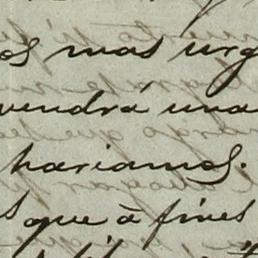 os mas urg
vendrá una
hariamos.
s que á fines